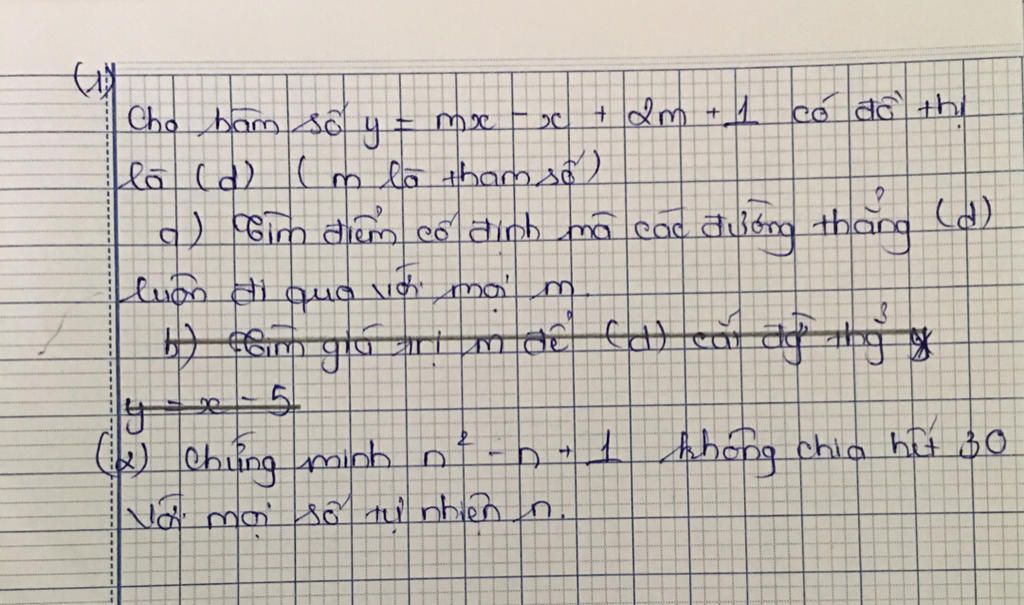 (1)
Cho hàm số y = mx - x + 2m + 1 có đồ thị
là (d) ( m là tham số)
a) Tìm điểm cố định mà các đường thẳng (d)
luôn đi qua với mọi m.
b) Tìm giá trị m để (d) cắt đg thg
y = x - 5
(2) Chứng minh n² - n + 1 không chia hết 30
với mọi số tự nhiên n.